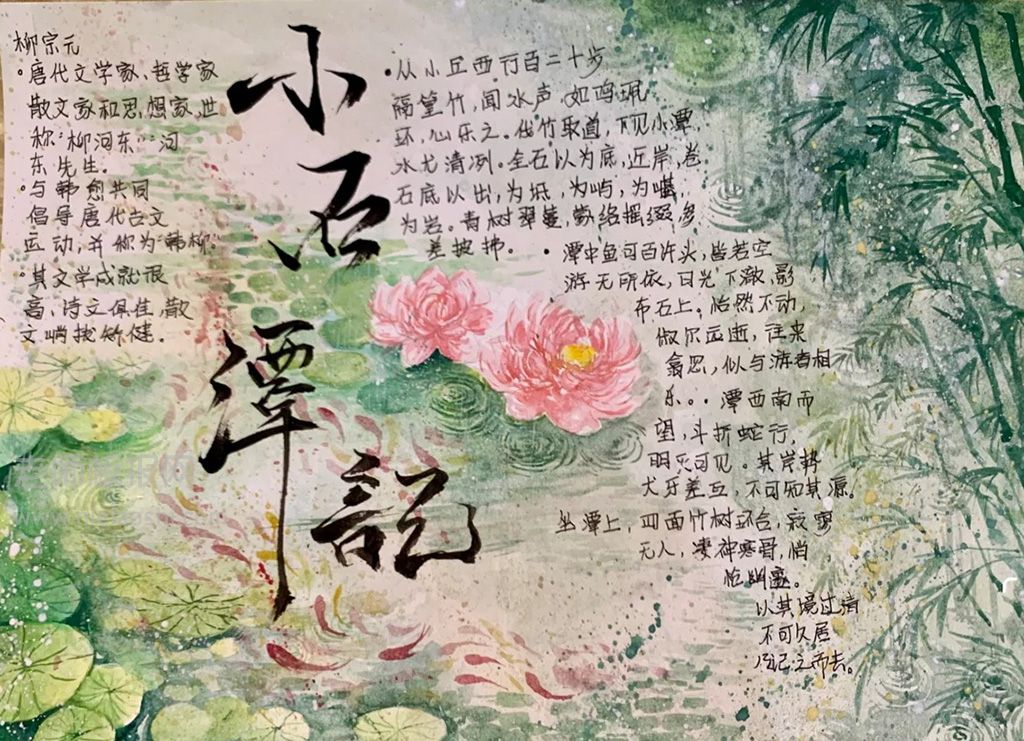 柳宗元
·唐代文学家、哲学家
散文家和思想家,世
称“柳河东”“河
东先生。
·与韩愈共同
倡导唐代古文
运动,并称为“韩柳
·其文学成就很
高,诗文俱佳,散
文峭拔矫健。
小石潭記
·从小丘西行百二十步
隔篁竹,闻水声,如鸣珮
环,心乐之。伐竹取道,下见小潭,
水尤清冽。全石以为底,近岸,卷
石底以出,为坻,为屿,为嵁,
为岩。青树翠蔓,蒙络摇缀,参
差披拂。
·潭中鱼可百许头,皆若空
游无所依,日光下澈,影
布石上。佁然不动,
俶尔远逝,往来
翕忽,似与游者相
乐。。潭西南而
望,斗折蛇行,
明灭可见。其岸势
犬牙差互,不可知其源。
坐潭上,四面竹树环合,寂寥
无人,凄神寒骨,悄
怆幽邃。
以其境过清
不可久居
乃记之而去。